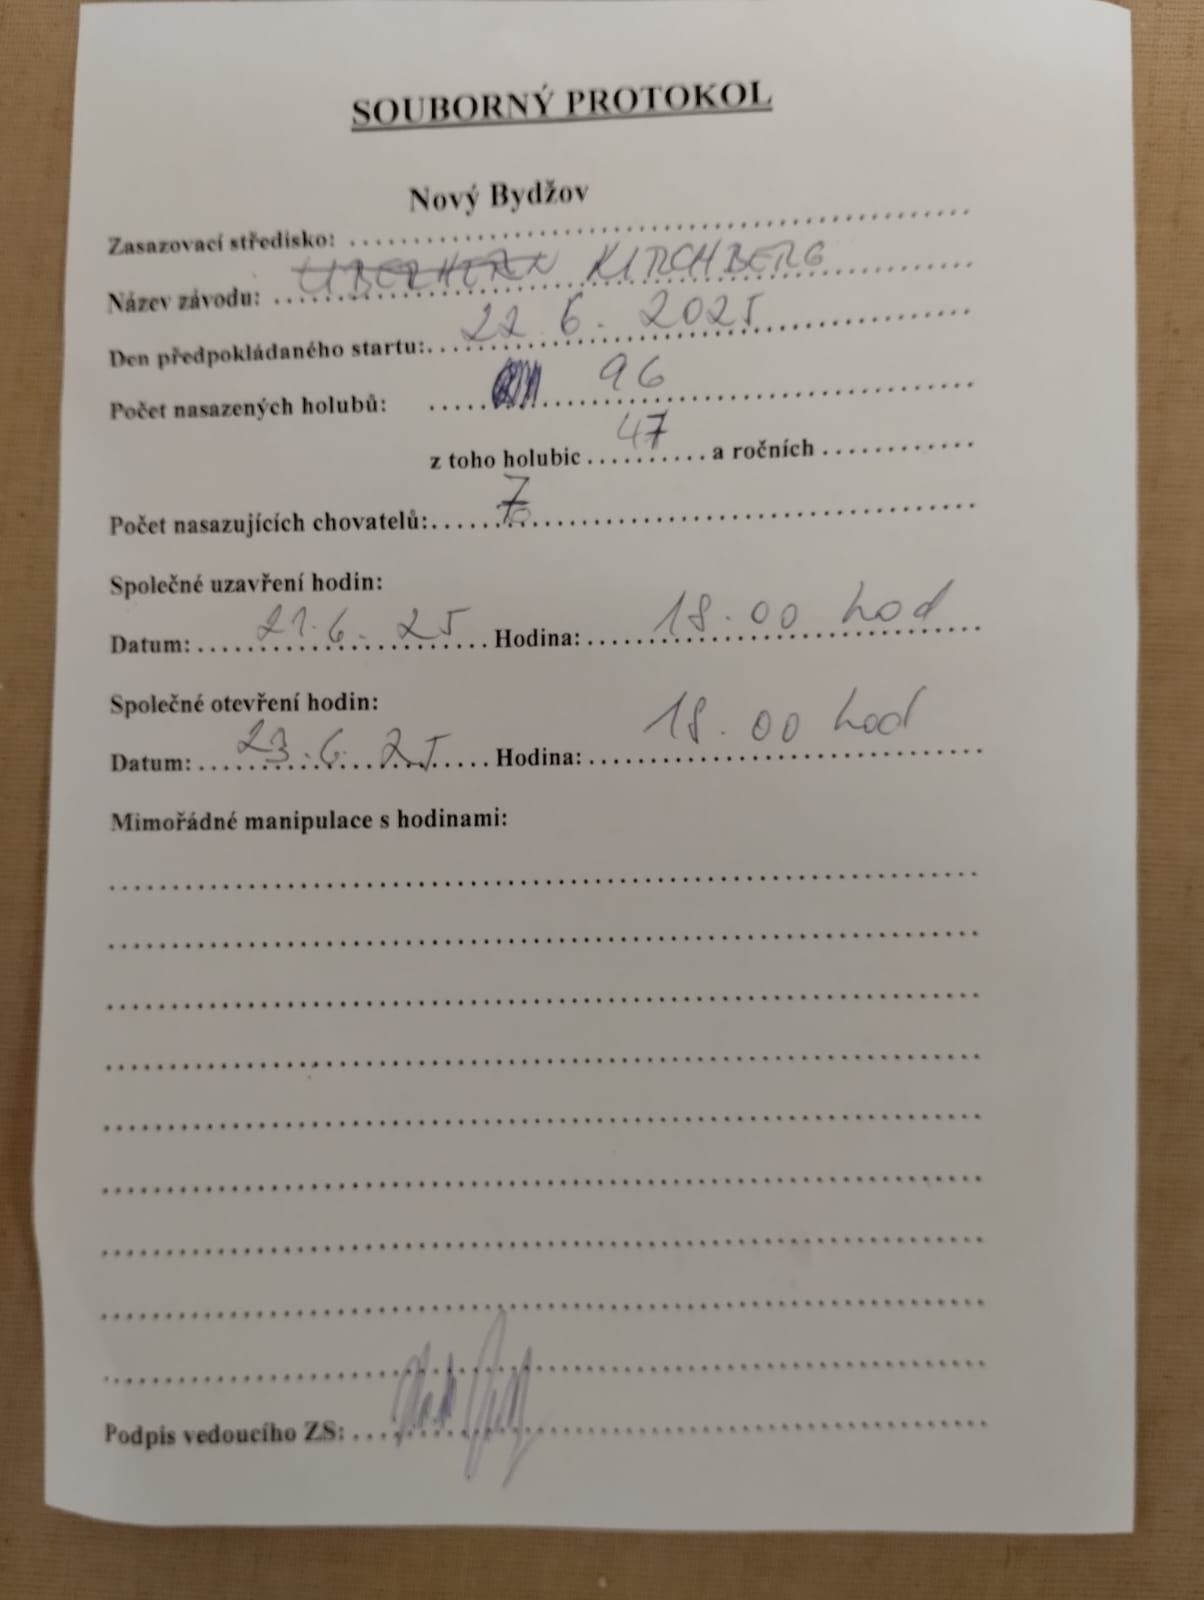 SOUBORNÝ PROTOKOL
Nový Bydžov
Zasazovací středisko: ........................................
Název závodu: UBERHERN KIRCHBERG
Den předpokládaného startu: 22. 6. 2025
Počet nasazených holubů: 96
z toho holubic 47 a ročních ............
Počet nasazujících chovatelů: 7
Společné uzavření hodin:
Datum: 21. 6. 25 Hodina: 18.00 hod
Společné otevření hodin:
Datum: 23. 6. 25 Hodina: 18.00 hod
Mimořádné manipulace s hodinami:
Podpis vedoucího ZS: